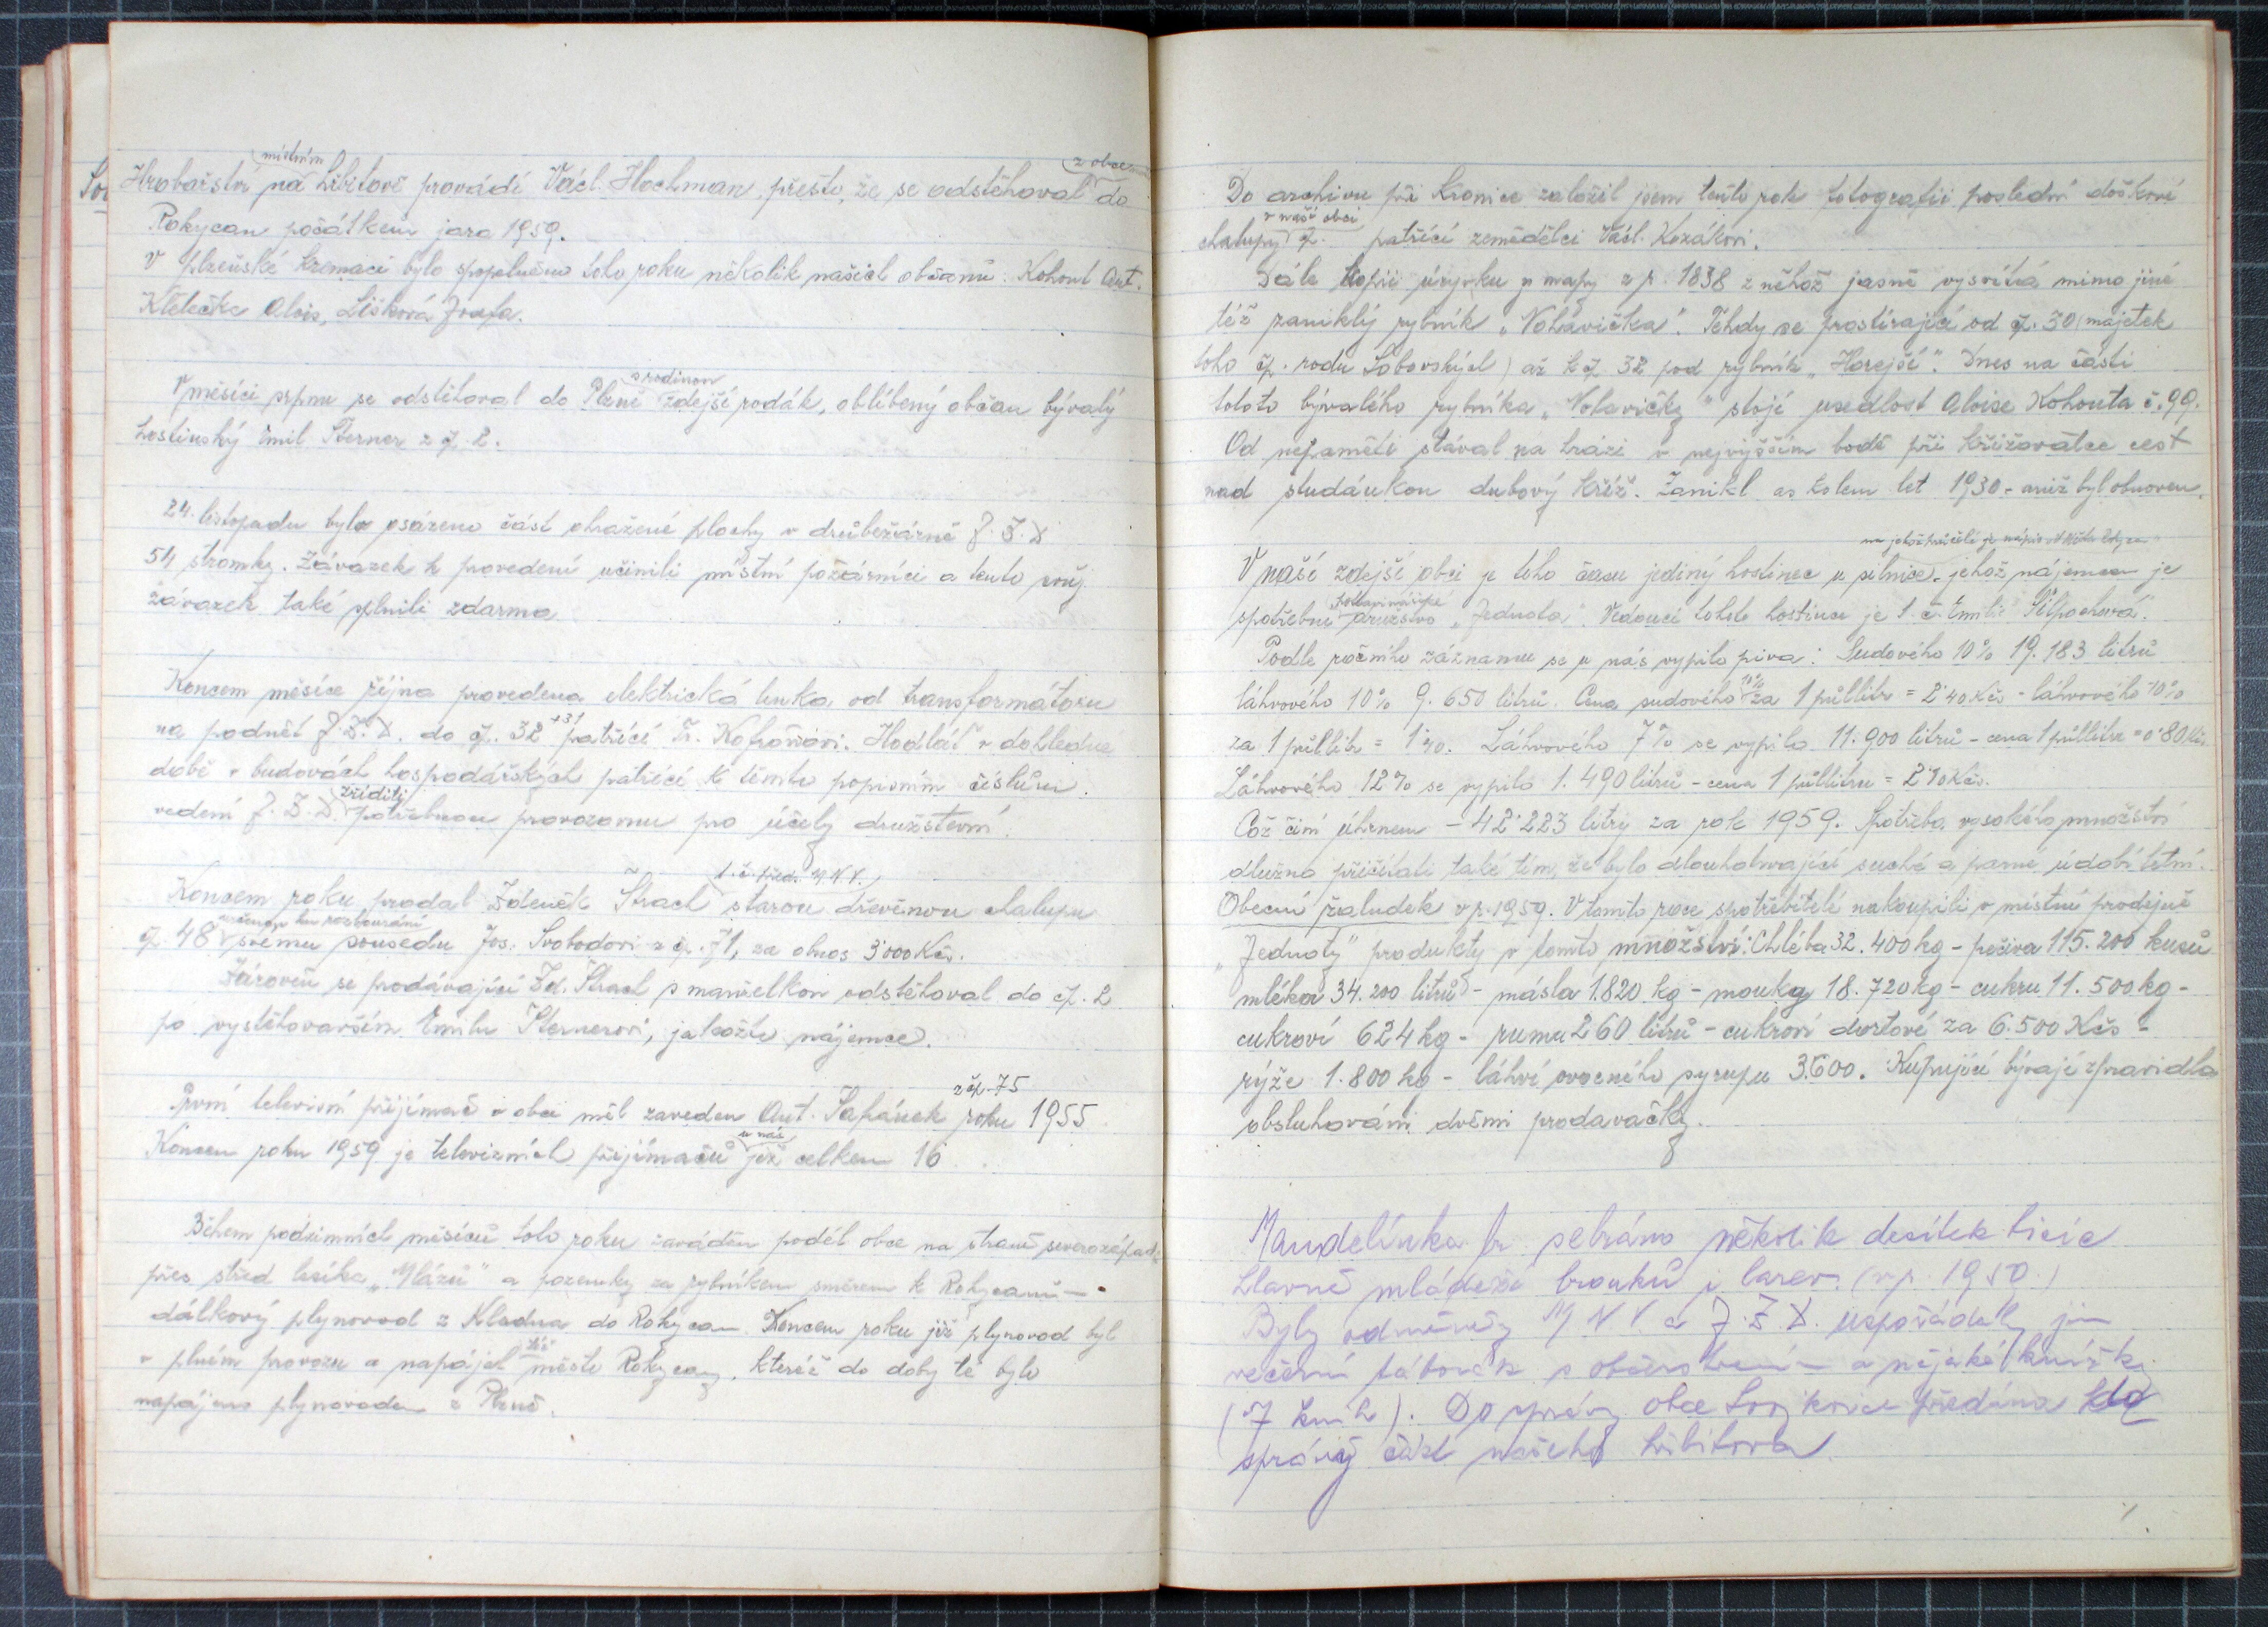 místním
z obce
Hrobařství na hřbitově provádí Václ. Hochman, přesto, že se odstěhoval do
Rokycan počátkem jara 1959.
V plzeňské kremaci bylo spopelněno toho roku několik našich občanů. Kohout Ant.
Klečka Alois, Lišková Josefa.
s rodinou
V měsíci srpnu se odstěhoval do Plzně zdejší rodák, oblíbený občan bývalý
hostinský Emil Šterner z čp. 2.
24. listopadu bylo osázeno část ohražené plochy v drůbežárně J.Z.D
54 stromky. Závazek k provedení učinili místní požárníci a tento svůj
závazek také splnili zdarma
Koncem měsíce října provedena elektrická linka od transformátoru
na podnět J.Z.D. do čp. 32 +31 patřící Fr. Kohoutovi. Hodlá v dohledné
době v budovách hospodářských patřící k těmto popisním číslům
vedení J.Z.D. zříditi potřebnou provozovnu pro účely družstevní.
t.č. před. M.N.V.
Koncem roku prodal Zdeněk Strach starou dřevěnou chalupu
určenou ku rozbourání
čp. 48 svému sousedu Jos. Svobodovi z čp. 71, za obnos 3'000 Kčs.
Zároveň se prodávající Zd. Strach s manželkou odstěhoval do čp. 2
po vystěhovavším Emilu Šternerovi, jakožto nájemce.
z čp. 75
První televisní přijímač v obci měl zaveden Ant. Šafránek roku 1955
u nás
Koncem roku 1959 je televizních přijímačů již celkem 16
Během podzimních měsíců toho roku zaváděn podél obce na straně severozápad.
přes střed lesíka „Mlází" a pozemky za rybníkem směrem k Rokycanům
dálkový plynovod z Kladna do Rokycan. Koncem roku již plynovod byl
v plném provozu a napájel též město Rokycany, kteréž do doby té bylo
napájeno plynovodem z Plzně.
Do archivu při kronice založil jsem tento rok fotografii poslední doškové
v naší obci
chalupy čp. patřící zemědělci Václ. Kozákovi.
Dále kopii úryvku z mapy z r. 1838 z něhož jasně vysvítá mimo jiné
též zaniklý rybník „Nohavička". Tehdy se prostírající od čp. 30 (majetek
toho čp. rodu Sobovských) až k čp 32 pod rybník „Horejší". Dnes na části
tohoto bývalého rybníka „Nohavičky" stojí usedlost Aloise Kohouta č. 99.
Od nepaměti stával na hrázi v nejvyšším bodě při křižovatce cest
nad studánkou dubový kříž. Zanikl as kolem let 1930 - aniž byl obnoven.
na jehož průčelí je nápis
V naší zdejší obci je toho času jediný hostinec u silnice, jehož nájemcem je
spotřební družstvo „Jednota". Vedoucí tohoto hostince je t.č. Emilie
Podle ročního záznamu se u nás vypilo piva: Sudového 10% 19.183 litrů
láhvového 10% 9.650 litrů. Cena sudového 10% za 1 půllitr = 2'40 Kčs - láhvového 10%
za 1 půllitr = 1'70. Láhvového 7% se vypilo 11.900 litrů - cena 1 půllitru = 0'80 Kčs
Láhvového 12% se vypilo 1.490 litrů - cena 1 půllitru = 2'10 Kčs.
Což činí úhrnem - 42'223 litry za rok 1959. Spotřeba vysokého množství
dlužno přičítati také tím, že bylo dlouhotrvající suché a parné údobí letní.
Obecní žaludek v r. 1959. V tomto roce spotřebitelé nakoupili v místní prodejně
„Jednoty" produkty v tomto množství: Chleba 32.400 kg - pečiva 115.200 kusů
mléka 34.200 litrů - másla 1.820 kg - mouky 18.720 kg - cukru 11.500 kg -
cukroví 624 kg - rumu 260 litrů - cukroví dortové za 6.500 Kčs -
rýže 1.800 kg - láhví ovocného syrupu 3.600. Kupující bývají zpravidla
obsluhováni dvěmi prodavačky.
Mandelínka br. sebráno několik desítek tisíc
hlavně mládeže brouků i larev. (v r. 1950.)
Byly odměněny MNV a J.Z.D. uspořádaly jim
večerní táborák s občerstvením a nějaké knížky
(7 knih). Do správy obce předána
správy část našeho hřbitova.